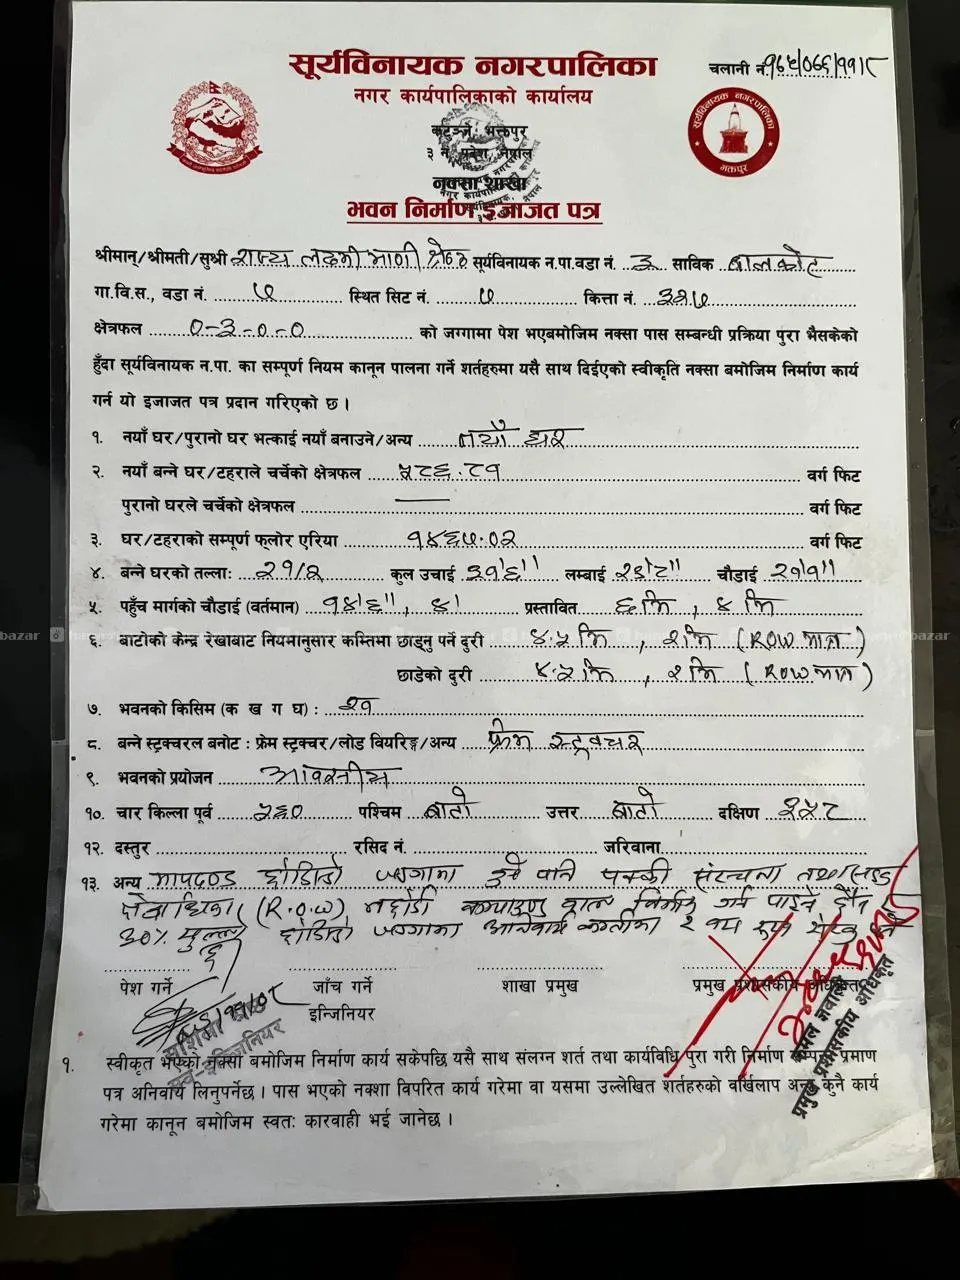 सूर्यविनायक नगरपालिका
चलानी नं.
नगर कार्यपालिकाको कार्यालय
कटुञ्जे, भक्तपुर
३ नं. प्रदेश, नेपाल
नक्सा शाखा
भवन निर्माण इजाजत पत्र
सूर्यविनायक नगरपालिका
भक्तपुर
श्रीमान्/श्रीमती/सुश्री राज्य लक्ष्मी माणी श्रेष्ठ सूर्यविनायक न.पा.वडा नं. ३ साविक बालकोट
गा.वि.स., वडा नं. ५ स्थित सिट नं. ५ कित्ता नं. ३२५
क्षेत्रफल ०-३-०-० को जग्गामा पेश भएबमोजिम नक्सा पास सम्बन्धी प्रक्रिया पुरा भैसकेको
हुँदा सूर्यविनायक न.पा. का सम्पूर्ण नियम कानून पालना गर्ने शर्तहरुमा यसै साथ दिईएको स्वीकृति नक्सा बमोजिम निर्माण कार्य
गर्न यो इजाजत पत्र प्रदान गरिएको छ ।
१. नयाँ घर/पुरानो घर भत्काई नयाँ बनाउने/अन्य नयाँ घर
२. नयाँ बन्ने घर/टहराले चर्चेको क्षेत्रफल ५८६.८१ वर्ग फिट
पुरानो घरले चर्चेको क्षेत्रफल वर्ग फिट
३. घर/टहराको सम्पूर्ण फ्लोर एरिया १४६५.०२ वर्ग फिट
४. बन्ने घरको तल्लाः २१/२ कुल उचाई ३१'६" लम्बाई २४'८" चौडाई २१'१"
५. पहुँच मार्गको चौडाई (वर्तमान) १४'६", ४' प्रस्तावित ६ मि, ४ मि
६. बाटोको केन्द्र रेखाबाट नियमानुसार कम्तिमा छाड्नु पर्ने दुरी ४.५ मि, २ मि (ROW मात्र)
छाडेको दुरी ४.५ मि, २ मि (ROW मात्र)
७. भवनको किसिम (क ख ग घ) :
८. बन्ने स्ट्रक्चरल बनोट : फ्रेम स्ट्रक्चर/लोड वियरिङ्ग/अन्य फ्रेम स्ट्रक्चर
९. भवनको प्रयोजन आवासीय
१०. चार किल्ला पूर्व ५६० पश्चिम बाटो उत्तर बाटो दक्षिण ३५८
१२. दस्तुर रसिद नं. जरिवाना
१३. अन्य मापदण्ड छोडिएको जग्गामा कुनै पनि पक्की संरचना तथा सडक
क्षेत्राधिकार (R.O.W) नछोडी कम्पाउण्ड वाल निर्माण गर्न पाइने छैन
३०% खुल्ला छोडिएको जग्गामा अनिवार्य
पेश गर्ने जाँच गर्ने शाखा प्रमुख प्रमुख प्रशासकीय अधिकृत
इन्जिनियर
सव-इन्जिनियर
कमल ज्ञवाली
प्रमुख प्रशासकीय अधिकृत
१. स्वीकृत भएको नक्सा बमोजिम निर्माण कार्य सकेपछि यसै साथ संलग्न शर्त तथा कार्यविधि पुरा गरी निर्माण सम्पन्न प्रमाण
पत्र अनिवार्य लिनुपर्नेछ । पास भएको नक्शा विपरित कार्य गरेमा वा यसमा उल्लेखित शर्तहरुको बर्खिलाप अन्य कुनै कार्य
गरेमा कानून बमोजिम स्वतः कारवाही भई जानेछ ।